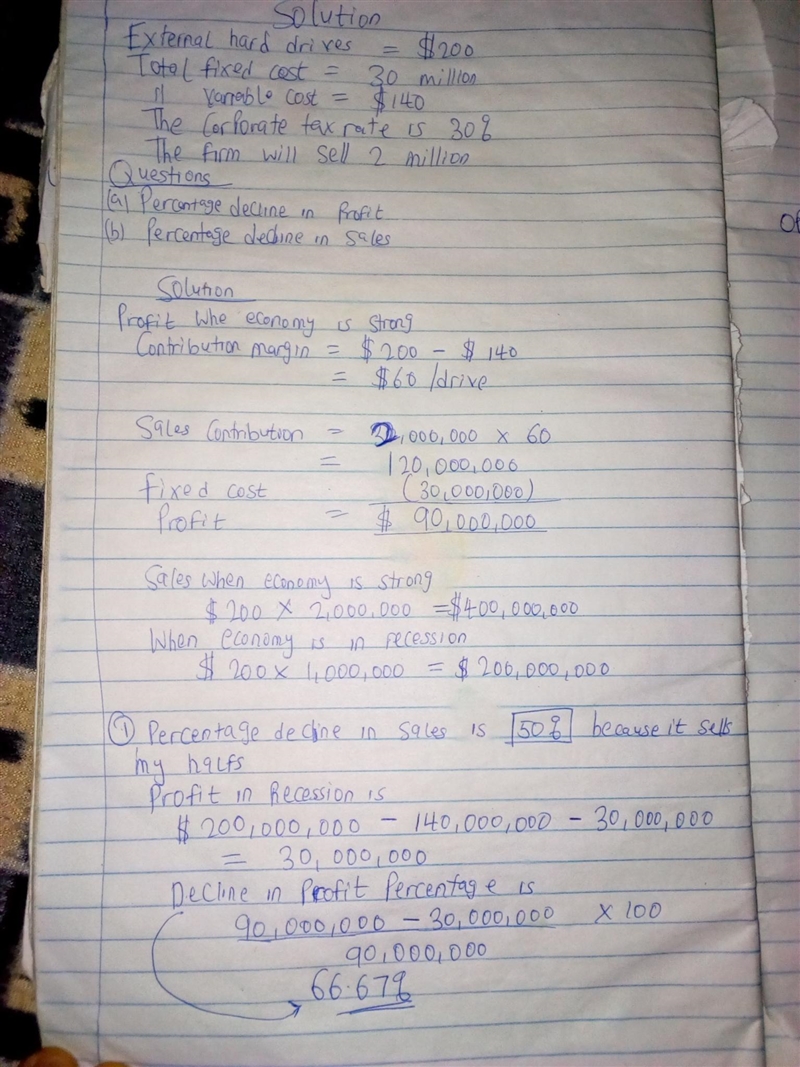 Solution
External hard drives = $200
Total fixed cost = 30 million
11 variable cost = $140
The Corporate tax rate is 30%
The firm will sell 2 million
Questions
(a) Percentage decline in Profit
(b) Percentage decline in Sales
Solution
Profit Whe economy is strong
Contribution margin = $200 - $140
= $60 /drive
Sales Contribution = 2,000,000 x 60
= 120,000,000
fixed cost (30,000,000)
Profit = $ 90,000,000
Sales when economy is strong
$200 x 2,000,000 = $400,000,000
When economy is in recession
$ 200 x 1,000,000 = $ 200,000,000
① Percentage decline in Sales is 50% because it sells
my halfs
Profit in Recession is
$ 200,000,000 - 140,000,000 - 30,000,000
= 30,000,000
Decline in Profit Percentage is
90,000,000 - 30,000,000 x 100
90,000,000
66.67%
Of